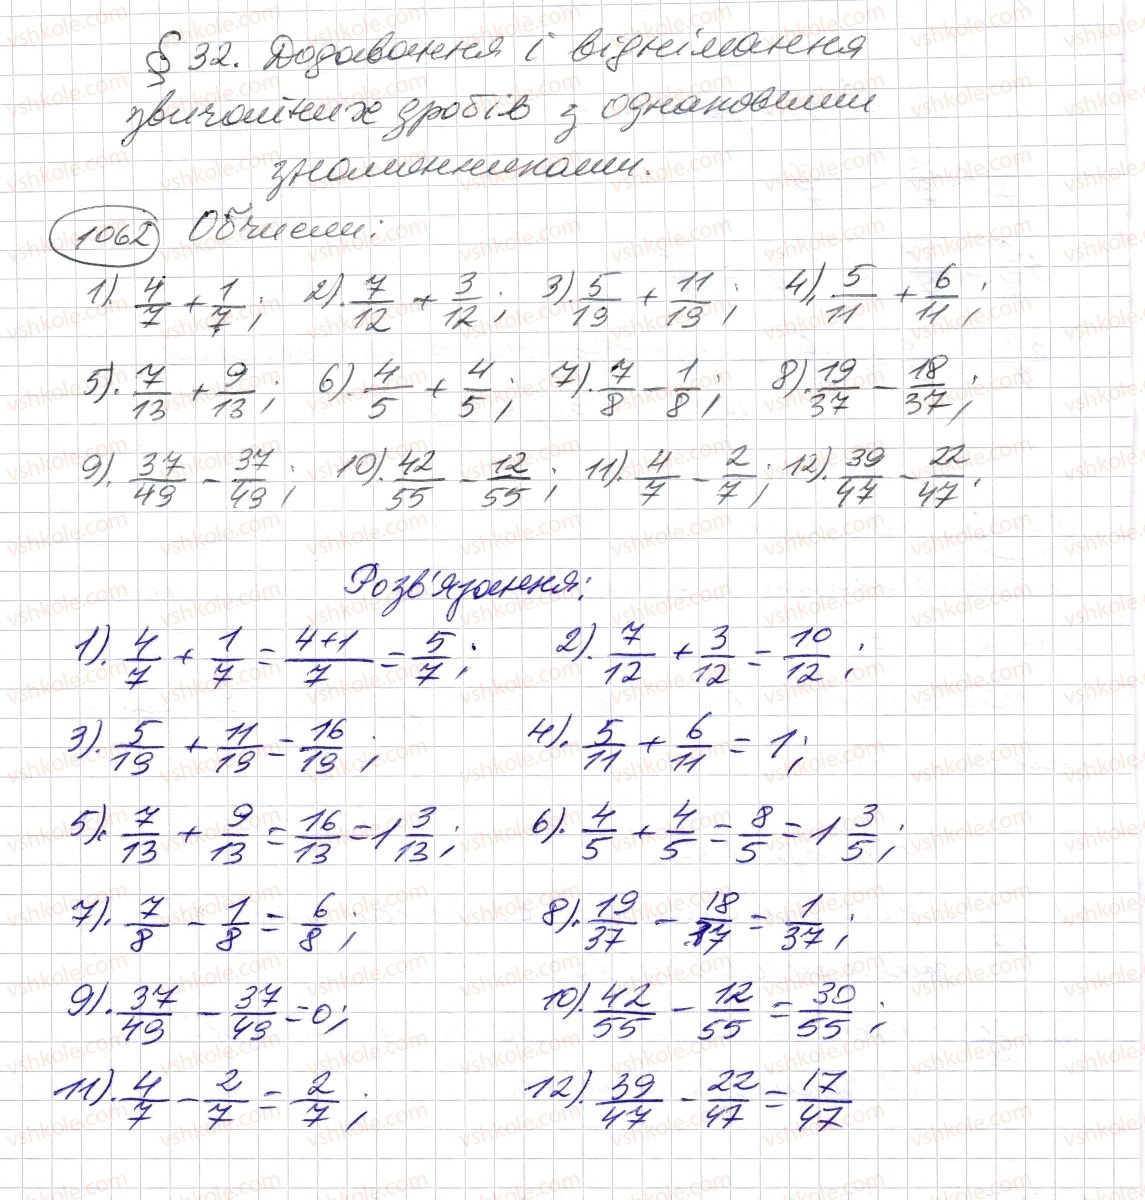 § 32. Додавання і віднімання
звичайних дробів з однаковими
знаменниками.
1062 Обчисли:
1). 4/7 + 1/7; 2). 7/12 + 3/12; 3). 5/19 + 11/19; 4). 5/11 + 6/11;
5). 7/13 + 9/13; 6). 4/5 + 4/5; 7). 7/8 - 1/8; 8). 19/37 - 18/37;
9). 37/49 - 37/49; 10). 42/55 - 12/55; 11). 4/7 - 2/7; 12). 39/47 - 22/47.
Розв'язання:
1). 4/7 + 1/7 = 4+1/7 = 5/7; 2). 7/12 + 3/12 = 10/12;
3). 5/19 + 11/19 = 16/19; 4). 5/11 + 6/11 = 1;
5). 7/13 + 9/13 = 16/13 = 1 3/13; 6). 4/5 + 4/5 = 8/5 = 1 3/5;
7). 7/8 - 1/8 = 6/8; 8). 19/37 - 18/37 = 1/37;
9). 37/49 - 37/49 = 0; 10). 42/55 - 12/55 = 30/55;
11). 4/7 - 2/7 = 2/7; 12). 39/47 - 22/47 = 17/47
vshkole.com